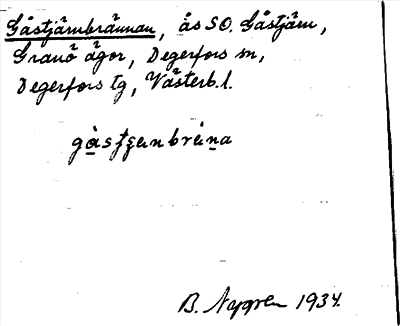 Gåstjärnbrännan, ås SO. Gåstjärn,
Granö ägor, Degerfors sn,
Degerfors tg, Västerb. l.
B. Nygren 1934.